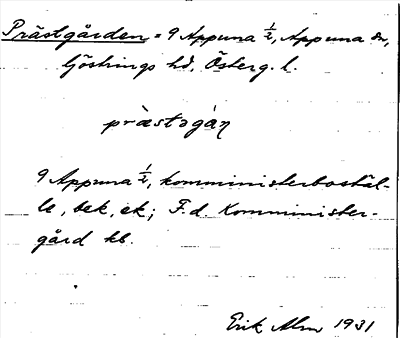 Prästgården = 9 Appuna ½, Appuna sn,
Göstrings hd, Österg. l.
präs̀təgán
9 Appuna ½, komministerbostäl-
le, bek, ek; F.d. Komminister-
gård kl.
Erik Alm 1931